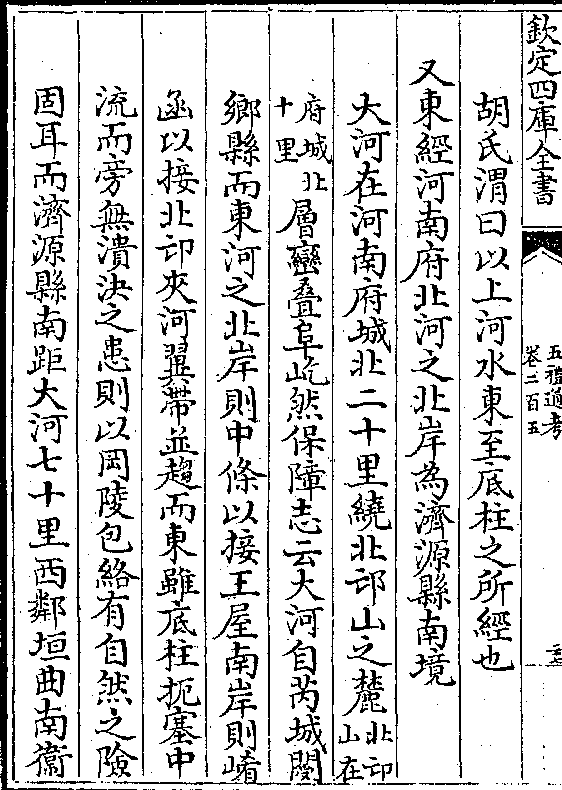 欽定四庫全書
五禮通考
卷二百五
胡氏渭曰以上河水東至底柱之所經也
又東經河南府北河之北岸為濟源縣南境
大河在河南府城北二十里繞北邙山之麓北邙
山在
府城北
十里層巒叠阜屹然保障志云大河自芮城閿
鄉縣而東河之北岸則中條以接王屋南岸則崤
函以接北邙夾河翼帶並趨而東雖底柱扼塞中
流而旁無潰決之患則以岡陵包絡有自然之險
固耳而濟源縣南距大河七十里西鄰垣曲南衞